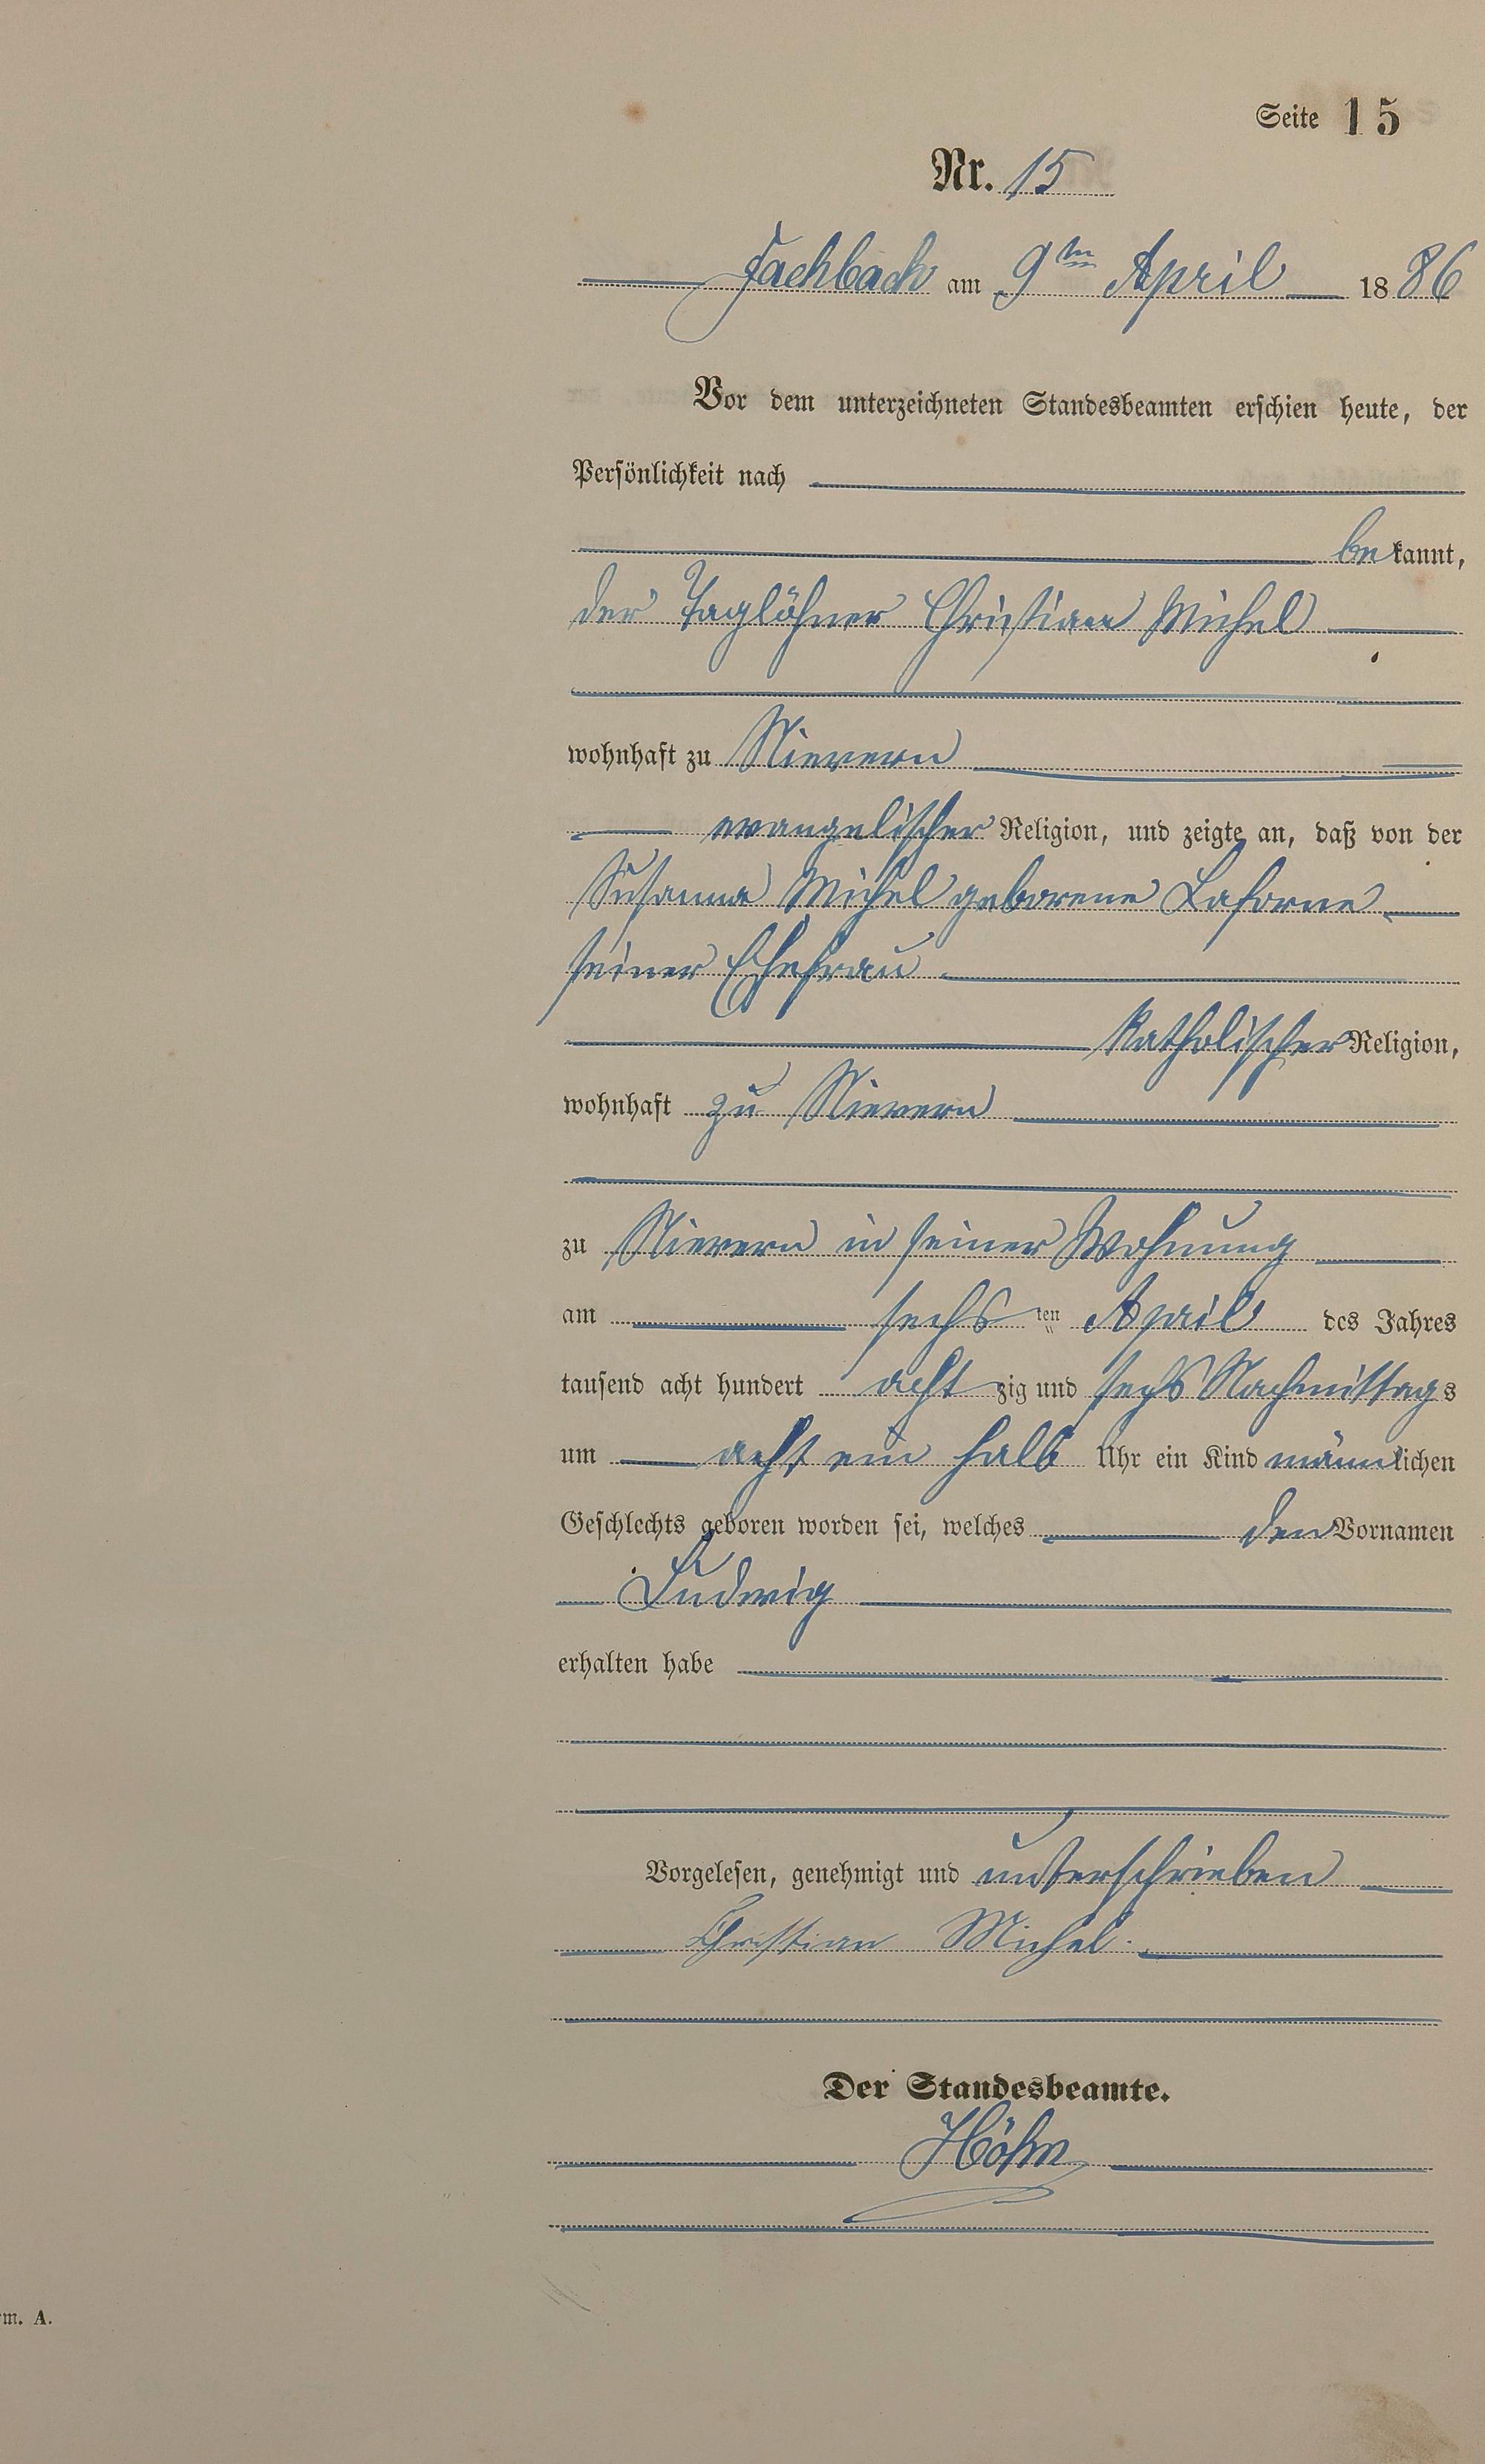 Seite 15
Nr. 15
Fachbach am 9ten April 1886
Vor dem unterzeichneten Standesbeamten erschien heute, der
Persönlichkeit nach
bekannt,
der Taglöhner Christian Michel
wohnhaft zu Nievern
evangelischer Religion, und zeigte an, daß von der
Susanna Michel geborene Laforne
seiner Ehefrau
katholischer Religion,
wohnhaft zu Nievern
zu Nievern in seiner Wohnung
am sechsten April des Jahres
tausend acht hundert achtzig und sechs Nachmittags
um acht ein halb Uhr ein Kind männlichen
Geschlechts geboren worden sei, welches den Vornamen
Ludwig
erhalten habe
Vorgelesen, genehmigt und unterschrieben
Christian Michel.
Der Standesbeamte.
Höhn
rm. A.